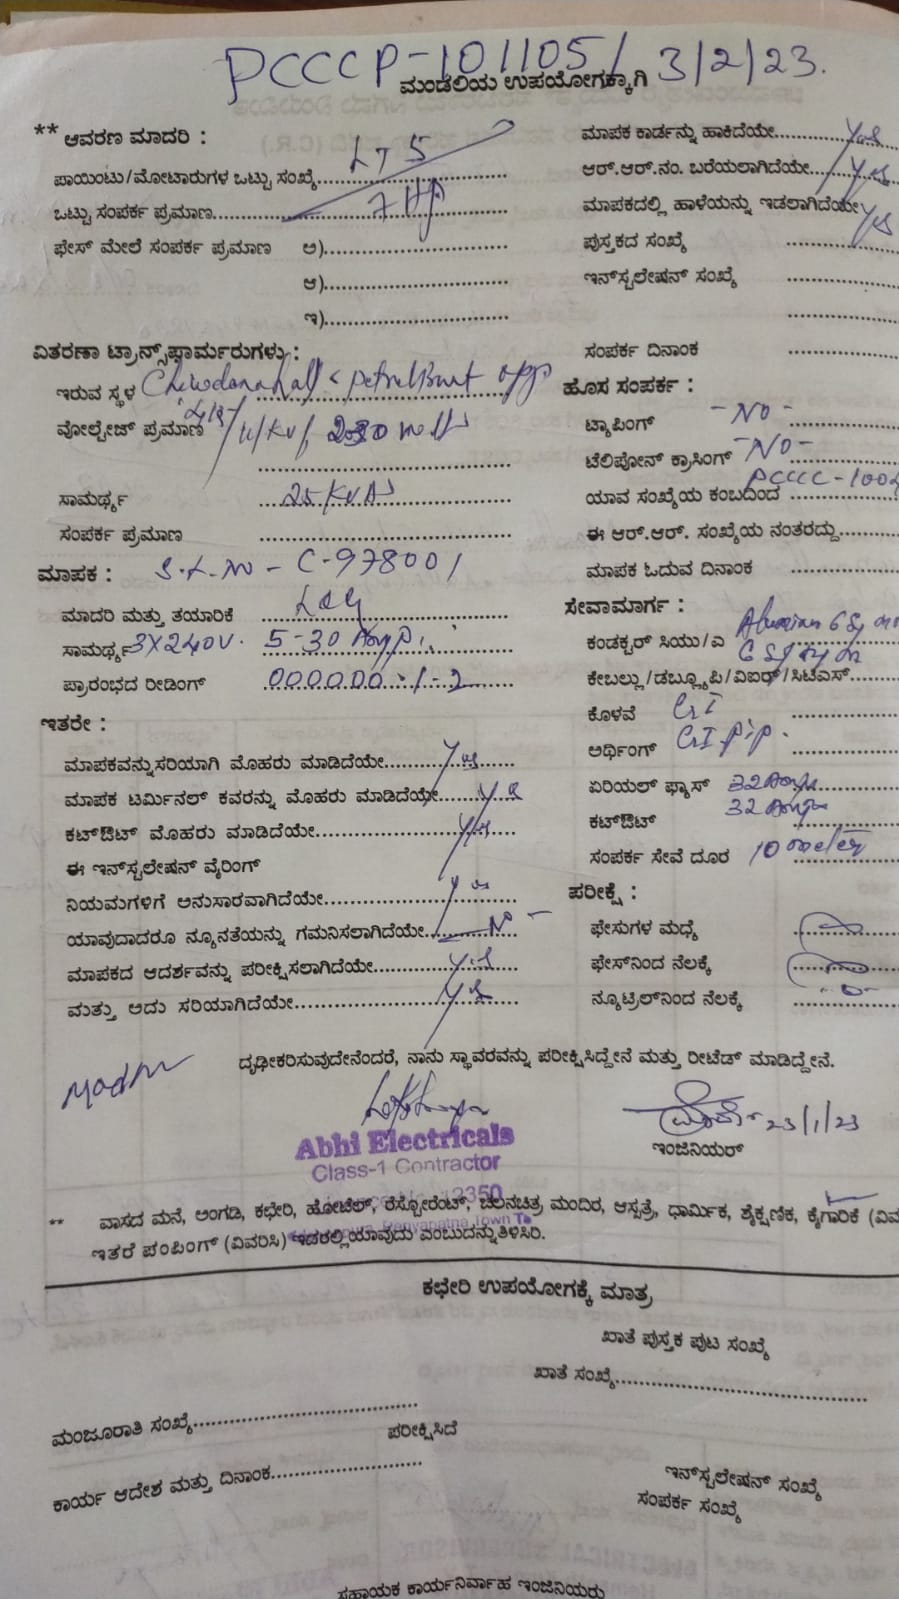 PCCCP-101105/ 3/2/23.
ಮಂಡಲಿಯ ಉಪಯೋಗಕ್ಕಾಗಿ
** ಆವರಣ ಮಾದರಿ :
ಪಾಯಿಂಟು/ಮೋಟಾರುಗಳ ಒಟ್ಟು ಸಂಖ್ಯೆ LT5
ಒಟ್ಟು ಸಂಪರ್ಕ ಪ್ರಮಾಣ 7 HP
ಫೇಸ್ ಮೇಲೆ ಸಂಪರ್ಕ ಪ್ರಮಾಣ ಅ)
ಆ)
ಇ)
ವಿತರಣಾ ಟ್ರಾನ್ಸ್‌ಫಾರ್ಮರುಗಳು :
ಇರುವ ಸ್ಥಳ
ವೋಲ್ಟೇಜ್ ಪ್ರಮಾಣ
ಸಾಮರ್ಥ್ಯ 25 KVA
ಸಂಪರ್ಕ ಪ್ರಮಾಣ
ಮಾಪಕ : S.L.No - C-978001
ಮಾದರಿ ಮತ್ತು ತಯಾರಿಕೆ L&G
ಸಾಮರ್ಥ್ಯ 3X240V. 5-30 Amp
ಪ್ರಾರಂಭದ ರೀಡಿಂಗ್ 000000.1-2
ಇತರೇ :
ಮಾಪಕವನ್ನುಸರಿಯಾಗಿ ಮೊಹರು ಮಾಡಿದೆಯೇ Yes
ಮಾಪಕ ಟರ್ಮಿನಲ್ ಕವರನ್ನು ಮೊಹರು ಮಾಡಿದೆಯೇ Yes
ಕಟ್‌ಔಟ್ ಮೊಹರು ಮಾಡಿದೆಯೇ Yes
ಈ ಇನ್‌ಸ್ಟಲೇಷನ್ ವೈರಿಂಗ್
ನಿಯಮಗಳಿಗೆ ಅನುಸಾರವಾಗಿದೆಯೇ Yes
ಯಾವುದಾದರೂ ನ್ಯೂನತೆಯನ್ನು ಗಮನಿಸಲಾಗಿದೆಯೇ No -
ಮಾಪಕದ ಆದರ್ಶವನ್ನು ಪರೀಕ್ಷಿಸಲಾಗಿದೆಯೇ Yes
ಮತ್ತು ಅದು ಸರಿಯಾಗಿದೆಯೇ Yes
ಮಾಪಕ ಕಾರ್ಡನ್ನು ಹಾಕಿದೆಯೇ Yes
ಆರ್.ಆರ್.ನಂ. ಬರೆಯಲಾಗಿದೆಯೇ Yes
ಮಾಪಕದಲ್ಲಿ ಹಾಳೆಯನ್ನು ಇಡಲಾಗಿದೆಯೇ Yes
ಪುಸ್ತಕದ ಸಂಖ್ಯೆ
ಇನ್‌ಸ್ಟಲೇಷನ್ ಸಂಖ್ಯೆ
ಸಂಪರ್ಕ ದಿನಾಂಕ
ಹೊಸ ಸಂಪರ್ಕ :
ಟ್ಯಾಪಿಂಗ್ - NO -
ಟೆಲಿಪೋನ್ ಕ್ರಾಸಿಂಗ್ - NO -
ಯಾವ ಸಂಖ್ಯೆಯ ಕಂಬದಿಂದ
ಈ ಆರ್.ಆರ್. ಸಂಖ್ಯೆಯ ನಂತರದ್ದು
ಮಾಪಕ ಓದುವ ದಿನಾಂಕ
ಸೇವಾಮಾರ್ಗ :
ಕಂಡಕ್ಟರ್ ಸಿಯು/ಎ
ಕೇಬಲ್ಲು/ಡಬ್ಲ್ಯೂಪಿ/ವಿಐಆರ್/ಸಿಟಿಎಸ್
ಕೊಳವೆ GI
ಅರ್ಥಿಂಗ್ GI pip.
ಏರಿಯಲ್ ಫ್ಯೂಸ್ 32 Amp
ಕಟ್‌ಔಟ್ 32 Amp
ಸಂಪರ್ಕ ಸೇವೆ ದೂರ 10 meter
ಪರೀಕ್ಷೆ :
ಫೇಸುಗಳ ಮಧ್ಯೆ
ಫೇಸ್‌ನಿಂದ ನೆಲಕ್ಕೆ
ನ್ಯೂಟ್ರಲ್‌ನಿಂದ ನೆಲಕ್ಕೆ - 0 -
ದೃಢೀಕರಿಸುವುದೇನೆಂದರೆ, ನಾನು ಸ್ಥಾವರವನ್ನು ಪರೀಕ್ಷಿಸಿದ್ದೇನೆ ಮತ್ತು ರೀಟೆಡ್ ಮಾಡಿದ್ದೇನೆ.
Abhi Electricals
Class-1 Contractor
23/1/23
ಇಂಜಿನಿಯರ್
** ವಾಸದ ಮನೆ, ಅಂಗಡಿ, ಕಛೇರಿ, ಹೋಟೆಲ್, ರೆಸ್ಟೋರೆಂಟ್, ಚಲನಚಿತ್ರ ಮಂದಿರ, ಆಸ್ಪತ್ರೆ, ಧಾರ್ಮಿಕ, ಶೈಕ್ಷಣಿಕ, ಕೈಗಾರಿಕೆ (ವಿವ
ಇತರೆ ಪಂಪಿಂಗ್ (ವಿವರಿಸಿ) ಇದರಲ್ಲಿಯಾವುದು ಎಂಬುದನ್ನುತಿಳಿಸಿರಿ.
ಕಛೇರಿ ಉಪಯೋಗಕ್ಕೆ ಮಾತ್ರ
ಖಾತೆ ಪುಸ್ತಕ ಪುಟ ಸಂಖ್ಯೆ
ಖಾತೆ ಸಂಖ್ಯೆ
ಮಂಜೂರಾತಿ ಸಂಖ್ಯೆ
ಪರೀಕ್ಷಿಸಿದೆ
ಕಾರ್ಯ ಆದೇಶ ಮತ್ತು ದಿನಾಂಕ
ಇನ್‌ಸ್ಟಲೇಷನ್ ಸಂಖ್ಯೆ
ಸಂಪರ್ಕ ಸಂಖ್ಯೆ
ಸಹಾಯಕ ಕಾರ್ಯನಿರ್ವಾಹ ಇಂಜಿನಿಯರು